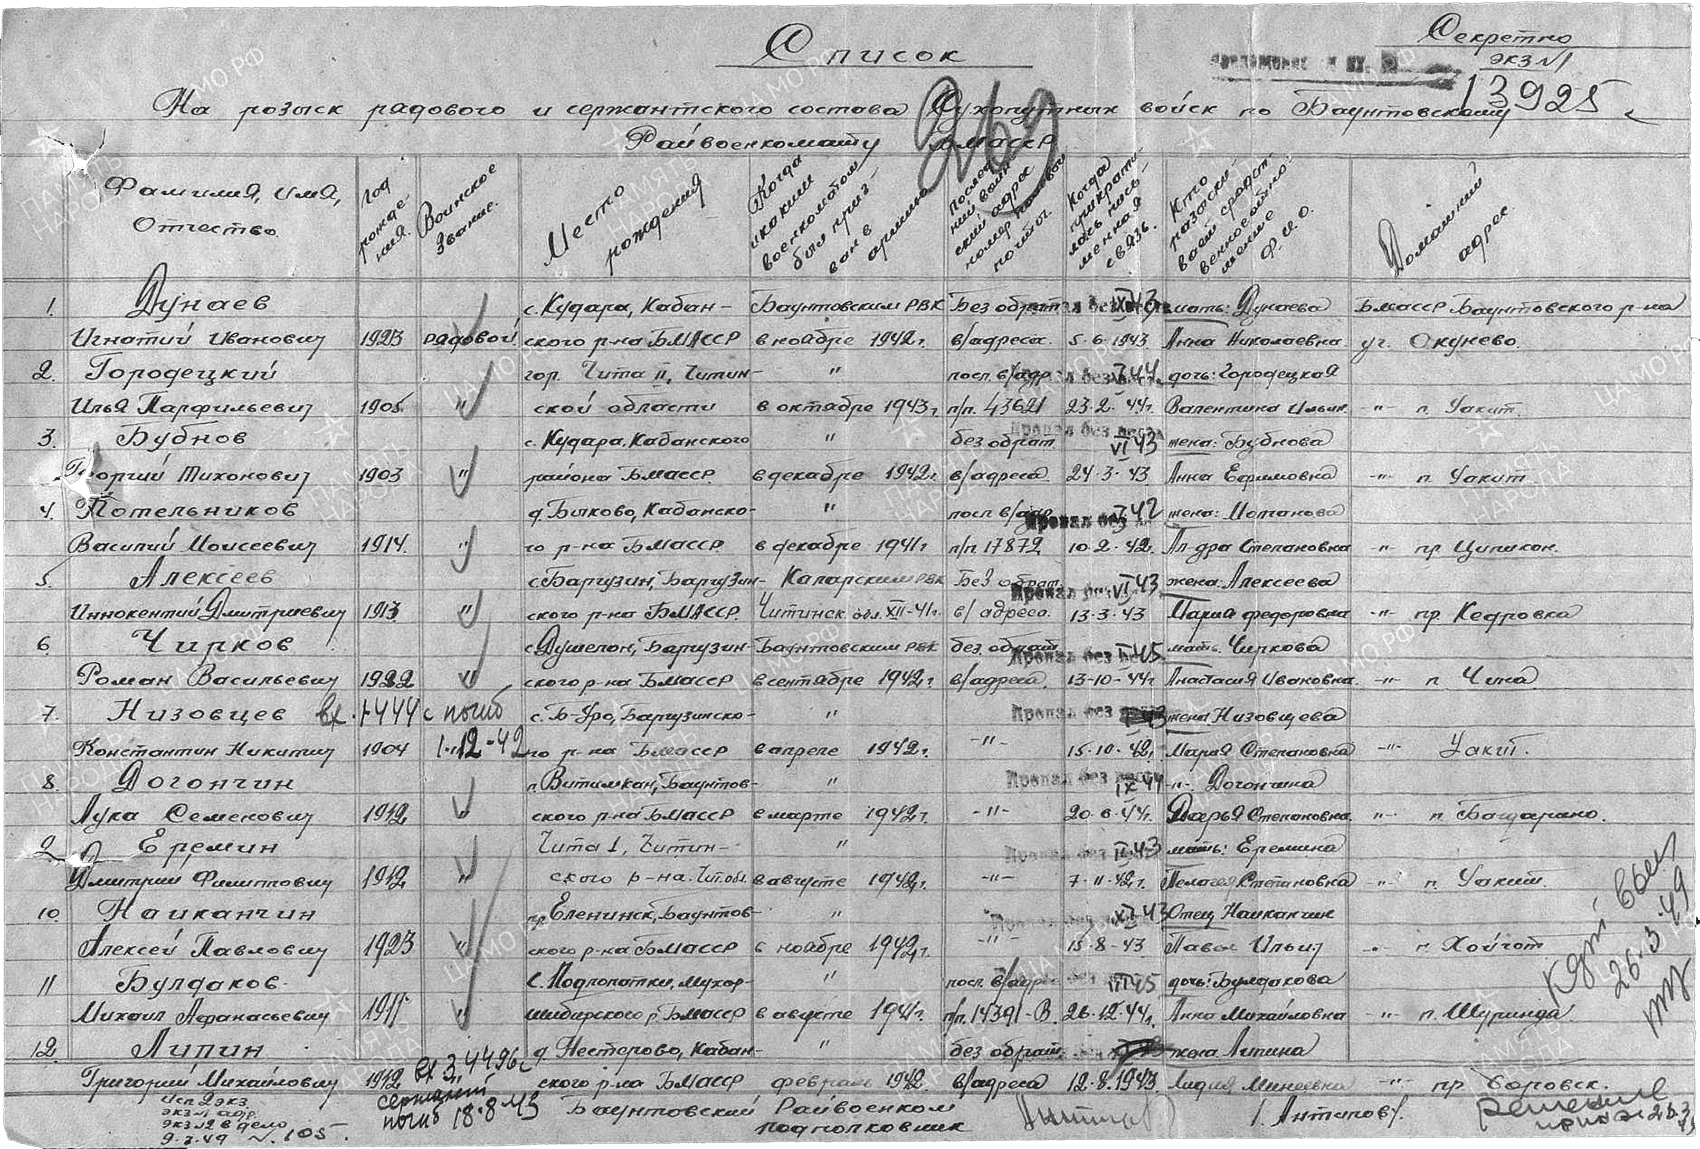 Секретно
экз №1
Список
13925
На розыск рядового и сержантского состава Сухопутных войск по Баунтовскому
Райвоенкомату БМАССР
249
Фамилия, имя, Отчество.
Год рождения.
Воинское звание.
Место рождения
Когда и каким военкоматом был призван в армию
Последний воинский адрес номер полевой почты.
Когда прекратилась письменная связь.
Кто разыскивает родственное отношение Ф.И.О.
Домашний адрес.
1. Дунаев с. Кудара, Кабан- Баунтовским РВК Без обрат. Пропал без вести XI 43 мать: Дунаева БМАССР Баунтовского р-на
Игнатий Иванович 1923 рядовой ского р-на БМАССР в ноябре 1942г. в/адреса. 5-6-1943 Анна Николаевна уч. Окунево.
2. Городецкий гор. Чита II, Читин- " посл. в/адр. Пропал без вести V 44 дочь: Городецкая
Илья Парфильевич 1905 " ской области в октябре 1943г. п/п. 43621 23-2-44г. Валентина Ильин. -"- п. Уакит
3. Бубнов с. Кудара, Кабанского " без обрат. Пропал без вести VI 43 жена: Бубнова
Георгий Тихонович 1903 " района БМАССР в декабре 1942г. в/адреса. 24-3-43 Анна Ефимовна -"- п. Уакит
4. Котельников д. Быково, Кабанско- " посл. в/адр. Пропал без V 42 жена:
Василий Моисеевич 1914. " го р-на БМАССР. в декабре 1941г п/п. 17872 10-2-42г. Ал-дра Степановна -"- пр. Ципикан.
5. Алексеев с. Баргузин, Баргузин- Каларским РВК Без обрат. Пропал без VI 43 жена: Алексеева
Иннокентий Дмитриевич 1913 " ского р-на БМАССР. Читинск. обл. XII-41г. в/адреса. 13-3-43 Мария Федоровна -"- пр. Кедровка
6. Чирков с. Душелан, Баргузин- Баунтовским РВК без. обрат. Пропал без вести I 45. мать. Чиркова
Роман Васильевич 1922 " ского р-на БМАССР в сентябре 1942г. в/адреса. 13-10-44г Анастасия Ивановна. -"- п. Чина
7. Низовцев вх. 1444с погиб с. Б-Уро, Баргузинско- " Пропал без жена Низовцева
Константин Никитич 1904 1-12-42 го р-на БМАССР в апреле 1942г. -"- 15-10-42г. Мария Степановна -"- Уакит.
8. Догончин п. Витимкан, Баунтов- " Пропал без вести IX 44 -"- Догончина
Лука Семенович 1912 ского р-на БМАССР в марте 1942г. -"- 20-6-44г. Дарья Степановна. -"- п. Багдарино.
9. Еремин Чита I, Читин- " Пропал без II 43 мать: Еремина
Дмитрий Филиппович 1912 " ского р-на. Чит. обл. в августе 1942г. -"- 7-11-42г. Пелагея Степановна -"- п. Уакит.
10. Наиканчин пр. Еленинск, Баунтов- " Пропал без XI 43 Отец Наиканчин
Алексей Павлович 1923 " ского р-на БМАССР в ноябре 1942г. -"- 15-8-43 Павел Ильич -"- п. Хойгот
11 Булдаков. с. Подлопатки, Мухор- " посл. в/адрес без III 45 дочь: Булдакова
Михаил Афанасьевич 1911 " шибирского р. БМАССР в августе 1941г. п/п. 14391-В. 26-12-44г. Анна Михайловна -"- п. Шуринда.
12. Липин д. Нестерово, Кабан- " без обрат. жена Липина
Григорий Михайлович 1912 вх 34496с ского р-на БМАССР февраль 1942. в/адреса 12-8-1943. Лидия Минеевна -"- пр. Боровск.
сержант
погиб 18-8-43
Исп 2 экз.
экз №1 адр.
экз №2 в дело
9-3-49 № 105.
Баунтовский Райвоенком
подполковник /. Антипов/.
26-3-49